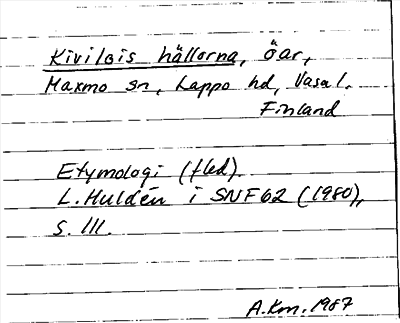 Kivilois hällorna, öar,
Maxmo sn, Lappo hd, Vasa l.
Finland
Etymologi (fled).
L. Huldén i SNF 62 (1980),
s. 111.
A.Km. 1987